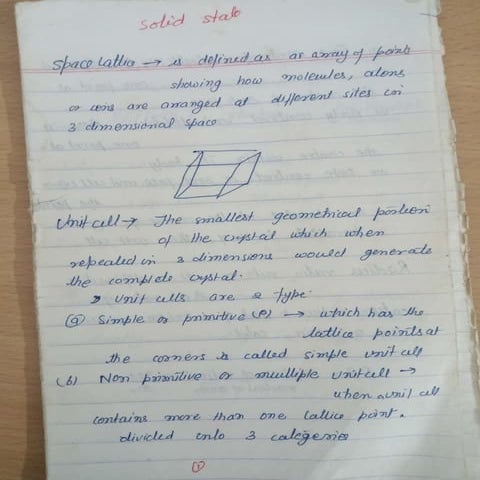 Solid state
Space lattice → is defined as as array of points
showing how molecules, atoms
or ions are arranged at different sites in
3 dimensional space
Unit cell → The smallest geometrical portion
of the crystal which when
repeated in 3 dimensions would generate
the complete crystal.
Unit cells are 2 type.
(a) Simple or primitive (P) → which has the
lattice points at
the corners is called simple unit cell
(b) Non primitive or multiple unit cell →
when a unit cell
contains more than one lattice point.
divided into 3 categories
1